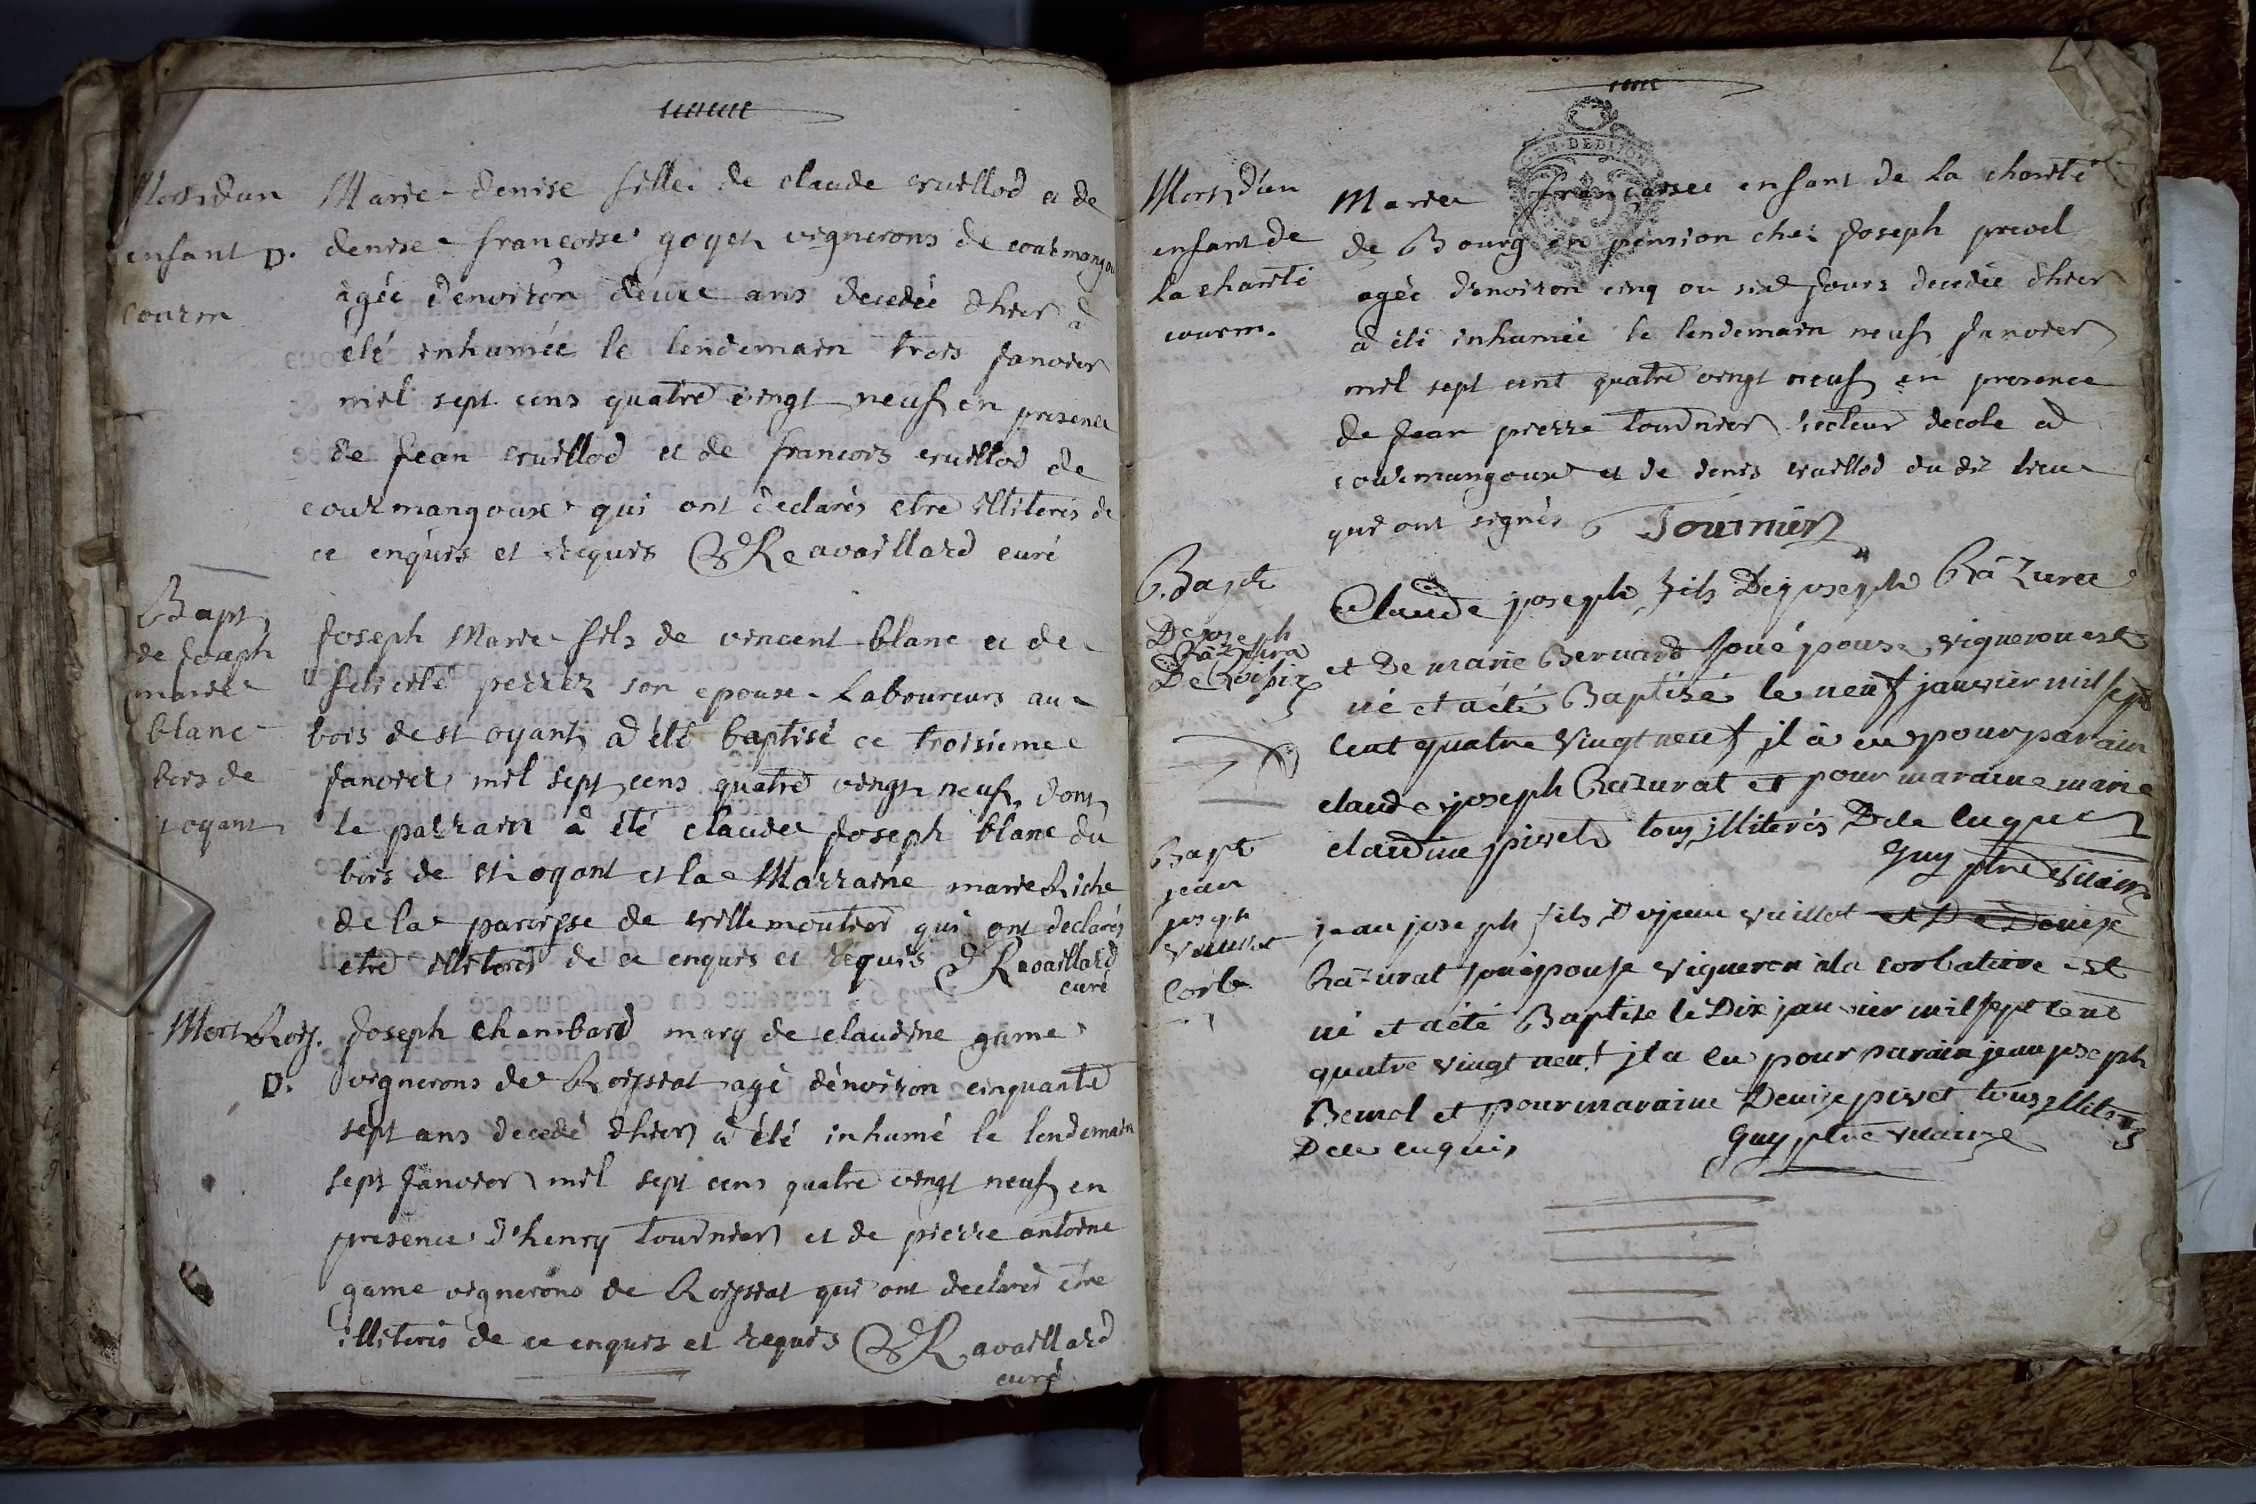 Mort dun
enfant D.
Courm
Marie denise fille de claude vuillod et de
denise francoise goyet vignerons de courmangou
agée denviron deux ans decedée dhier a
eté inhumée le lendemain trois janvier
mil sept cens quatre vingt neuf en presence
de jean vuillod et de francois vuillod de
courmangoux qui ont declarés etre illiterés de
ce enquis et requis Ravaillard curé
Bapt
de joseph
marie
blanc
bois de
st oyant
joseph Marie fils de vincent blanc et de
felicité perrez son epouse Laboureurs au
bois de st oyant a été baptisé ce troisieme
janvier mil sept cens quatre vingt neuf dont
le parrain a été claude joseph blanc du
bois de st oyant et la Marraine marie Riche
de la paroisse de villemoutier qui ont declarés
etre illiterés de ce enquis et requis Ravaillard
curé
Mort Rois.
D.
joseph chambard mary de claudine game
vignerons de Roissiat agé denviron cinquante
sept ans decedé dhier a été inhumé le lendemain
sept janvier mil sept cens quatre vingt neuf en
presence d'henry tournier et de pierre antoine
game vignerons de Roissiat qui ont declarés etre
illiterés de ce enquis et requis Ravaillard
curé
GEN. DE DIJON
Mort d'un
enfant de
la charité
courm.
Marie francoise enfant de la charité
de Bourg en pension chez joseph prevel
agée denviron cinq ou six jours decedée dhier
a été inhumée le lendemain neuf janvier
mil sept cent quatre vingt neuf en presence
de jean pierre tournier recteur decole a
courmangoux et de denis vuillod du dit lieu
qui ont signés Tournier
Bapt
De joseph
Râzura
De Roisia
Claude joseph fils De joseph Râzura
et De marie Bernard son épouse vigneron est
né et a été Baptisé le neuf janvier mil sept
cent quatre vingt neuf il a eu pour parain
claude joseph Razurat et pour maraine marie
claudine pivet tous illiterés De ce enquis
Guy ptre vicaire
Bapt
jean
joseph
vuillot
Corb
jean joseph fils De jean vuillot et De Denise
Razurat son épouse vigneron à la corbatiere est
né et a été Baptisé le Dix janvier mil sept cent
quatre vingt neuf il a eu pour parain jean joseph
Bernol et pour maraine Denise pivet tous illiterés
De ce enquis Guy ptre vicaire